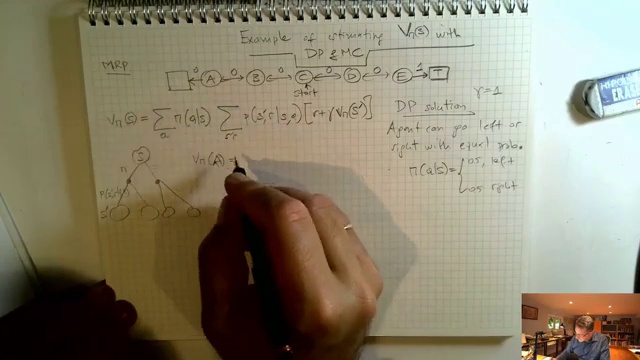 Example of estimating Vπ(s) with
DP & MC
MRP
0 A 0 B 0 C 0 D 0 E 1 T
start
Vπ(s) = ∑a π(a|s) ∑s'r p(s',r|s,a) [r+γVπ(s')]
DP solution γ=1
Agent can go left or
right with equal prob.
π(a|s)= { 0.5, left
0.5 right
S
π
Vπ(A) =
s'
ERAS